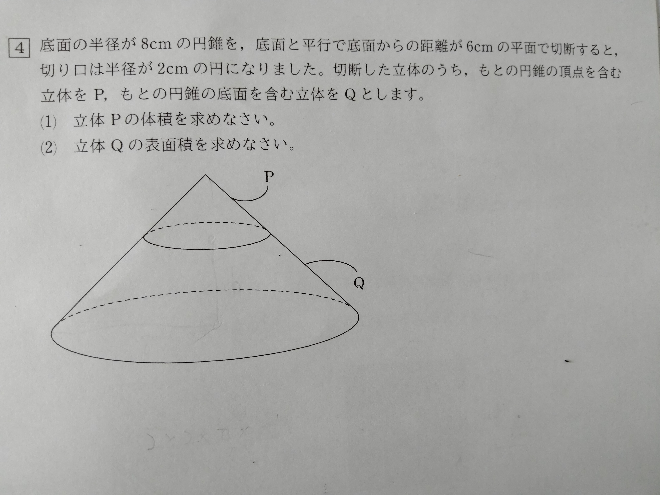 4 底面の半径が 8cm の円錐を，底面と平行で底面からの距離が 6cm の平面で切断すると，
切り口は半径が 2cm の円になりました。切断した立体のうち，もとの円錐の頂点を含む
立体を P，もとの円錐の底面を含む立体を Q とします。
(1) 立体 P の体積を求めなさい。
(2) 立体 Q の表面積を求めなさい。
P
Q